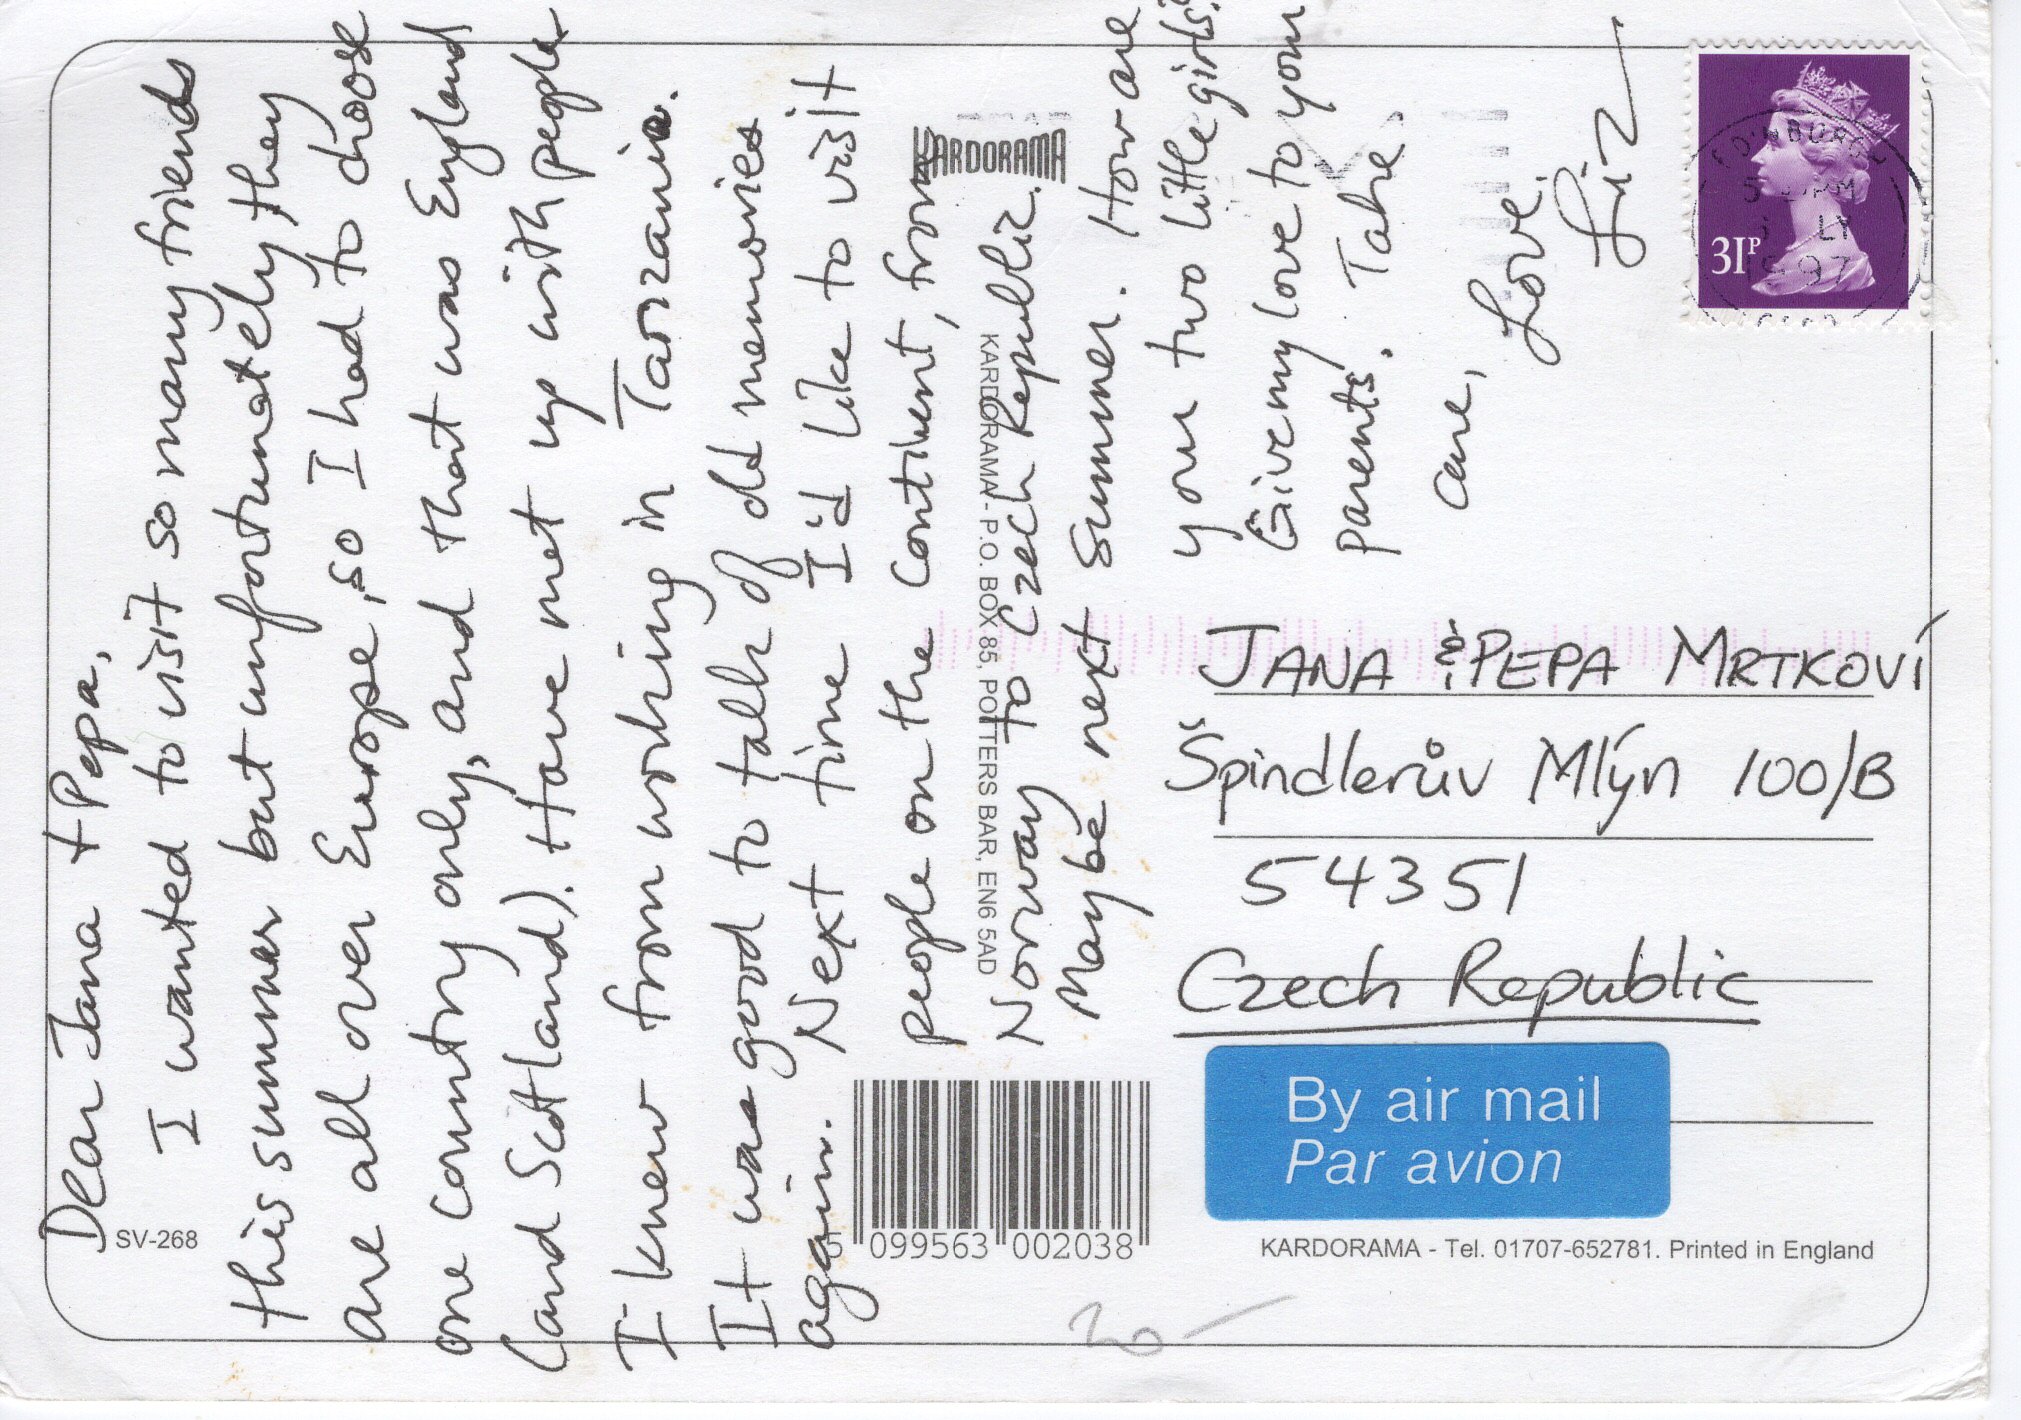 Dear Jana + Pepa,
I wanted to visit so many friends
this summer but unfortunately they
are all over Europe, so I had to choose
one country only, and that was England
(and Scotland). Have met up with people
I knew from working in Tanzania.
It was good to talk of old memories
again. Next time I'd like to visit
people on the continent, from
Norway to Czech Republic.
Maybe next summer. How are
your two little girls?
Give my love to your
parents. Take
care,
Love,
Liz
KARDORAMA
KARDORAMA - P.O. BOX 85, POTTERS BAR, EN6 5AD
31P
EDINBURGH
PM
LY
1997
JANA & PEPA MRTKOVÍ
Špindlerův Mlýn 100/B
54351
Czech Republic
By air mail
Par avion
SV-268
5 099563 002038
KARDORAMA - Tel. 01707-652781. Printed in England
20-